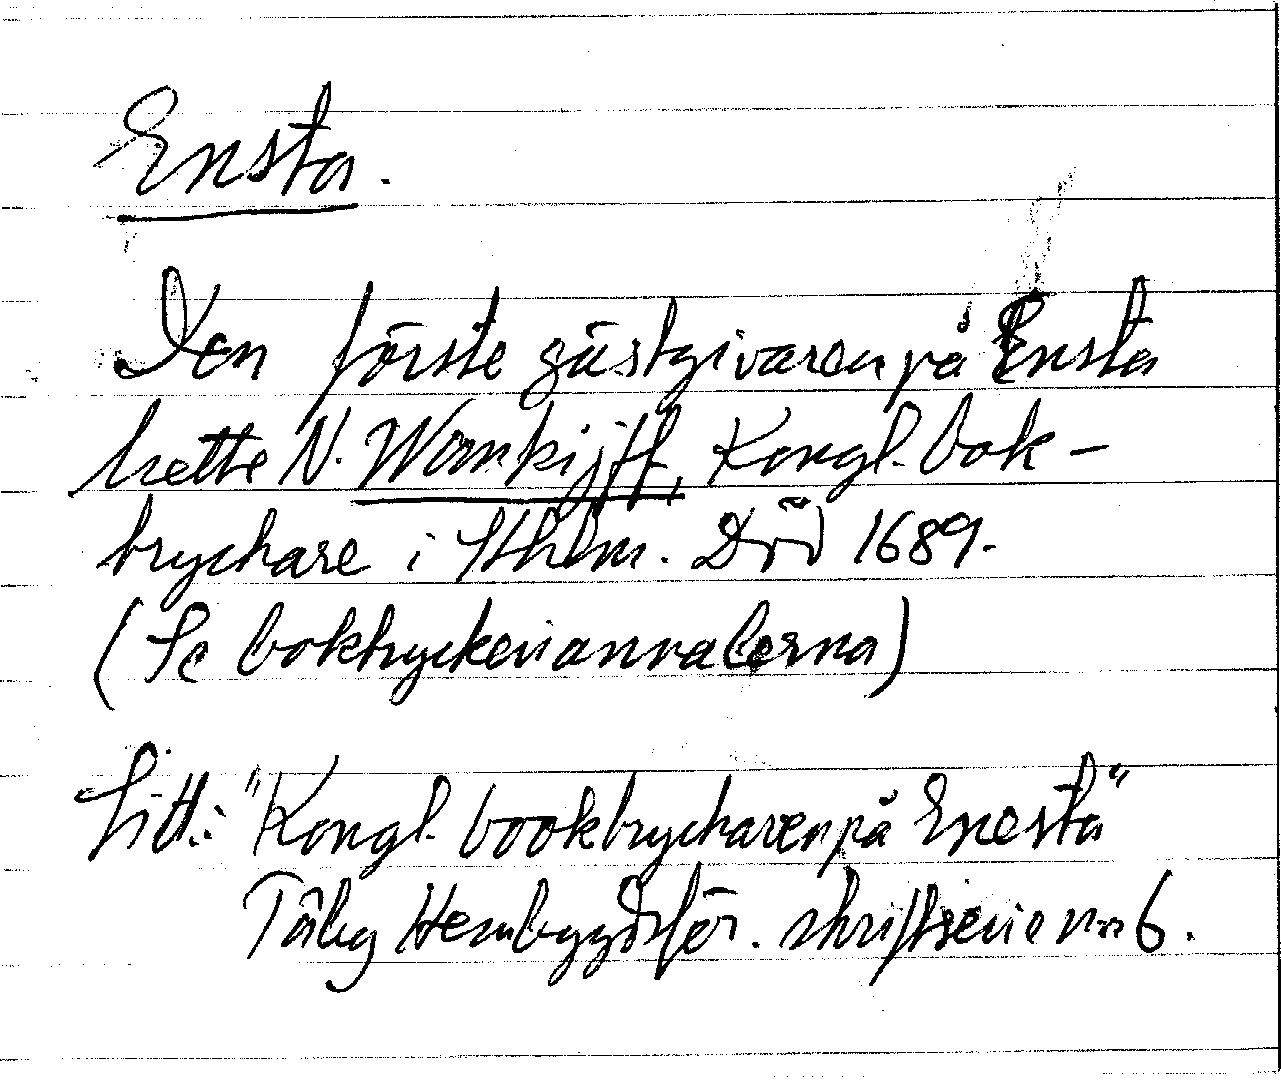 Ensta.
Den förste gästgivaren på Ensta
hette N. Wankijff, Kongl. bok-
tryckare i Sthlm. Död 1689.
(Se boktryckeriannalerna)
Litt.: "Kongl. booktryckaren på Enesta"
Täby Hembygdsför. skriftserie nr 6.